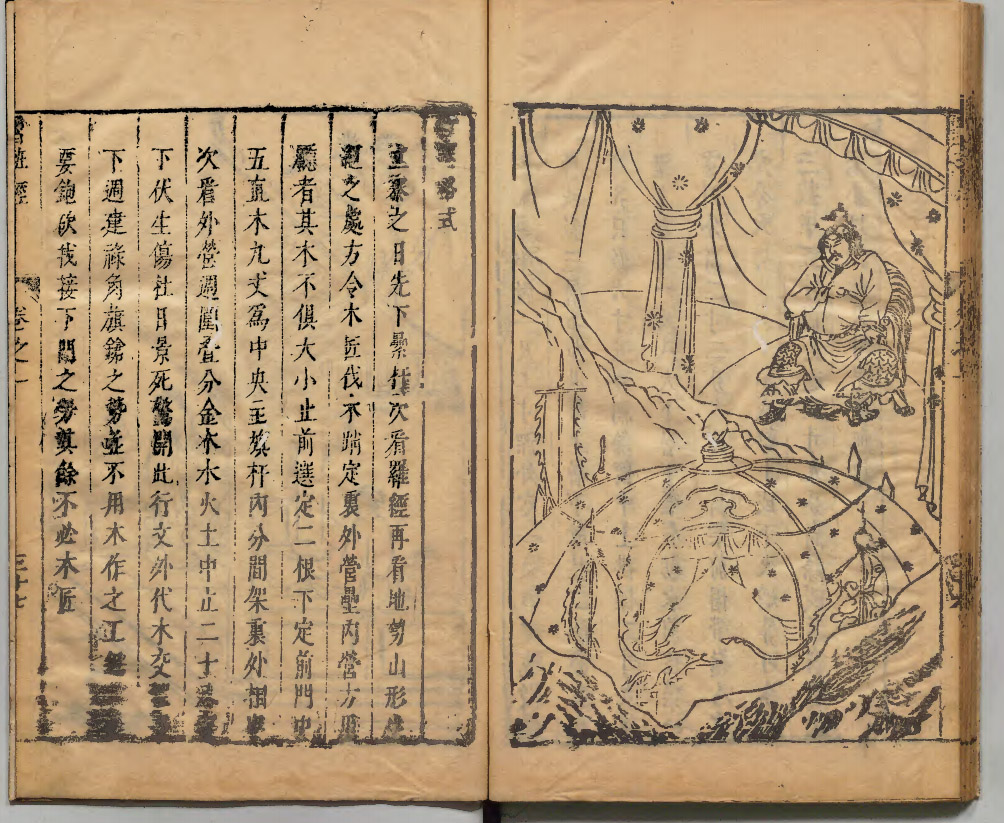 格式
立寨之日先下纍杆次看羅經再看地勢山形生
絕之處方令木匠伐木踃定裏外營壘內營方用
廳者其木不俱大小止前選定二根下定前門中
五直木九丈爲中央主旗杆內分間架裏外相串
次看外營週圍疊分金木水火土中立二十八宿
下伏生傷杜日景死驚開此行文外代木交架
下週建祿角旗鎗之勢並不用木作之工
要鉋砍找接下門之勞其餘不必木匠
魯班經 卷之一 三十七